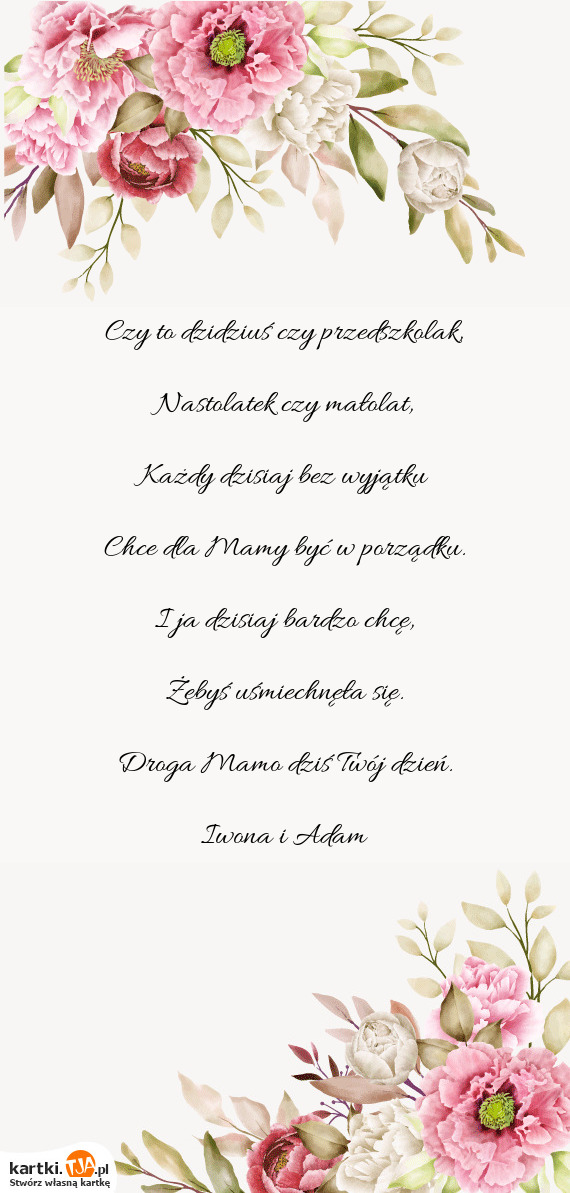 Czy to dzidziuś czy przedszkolak,
Nastolatek czy małolat,
Każdy dzisiaj bez wyjątku
Chce dla Mamy być w porządku.
I ja dzisiaj bardzo chcę,
Żebyś uśmiechnęła się.
Droga Mamo dziś Twój dzień.
Iwona i Adam
kartki.TJA.pl
Stwórz własną kartkę